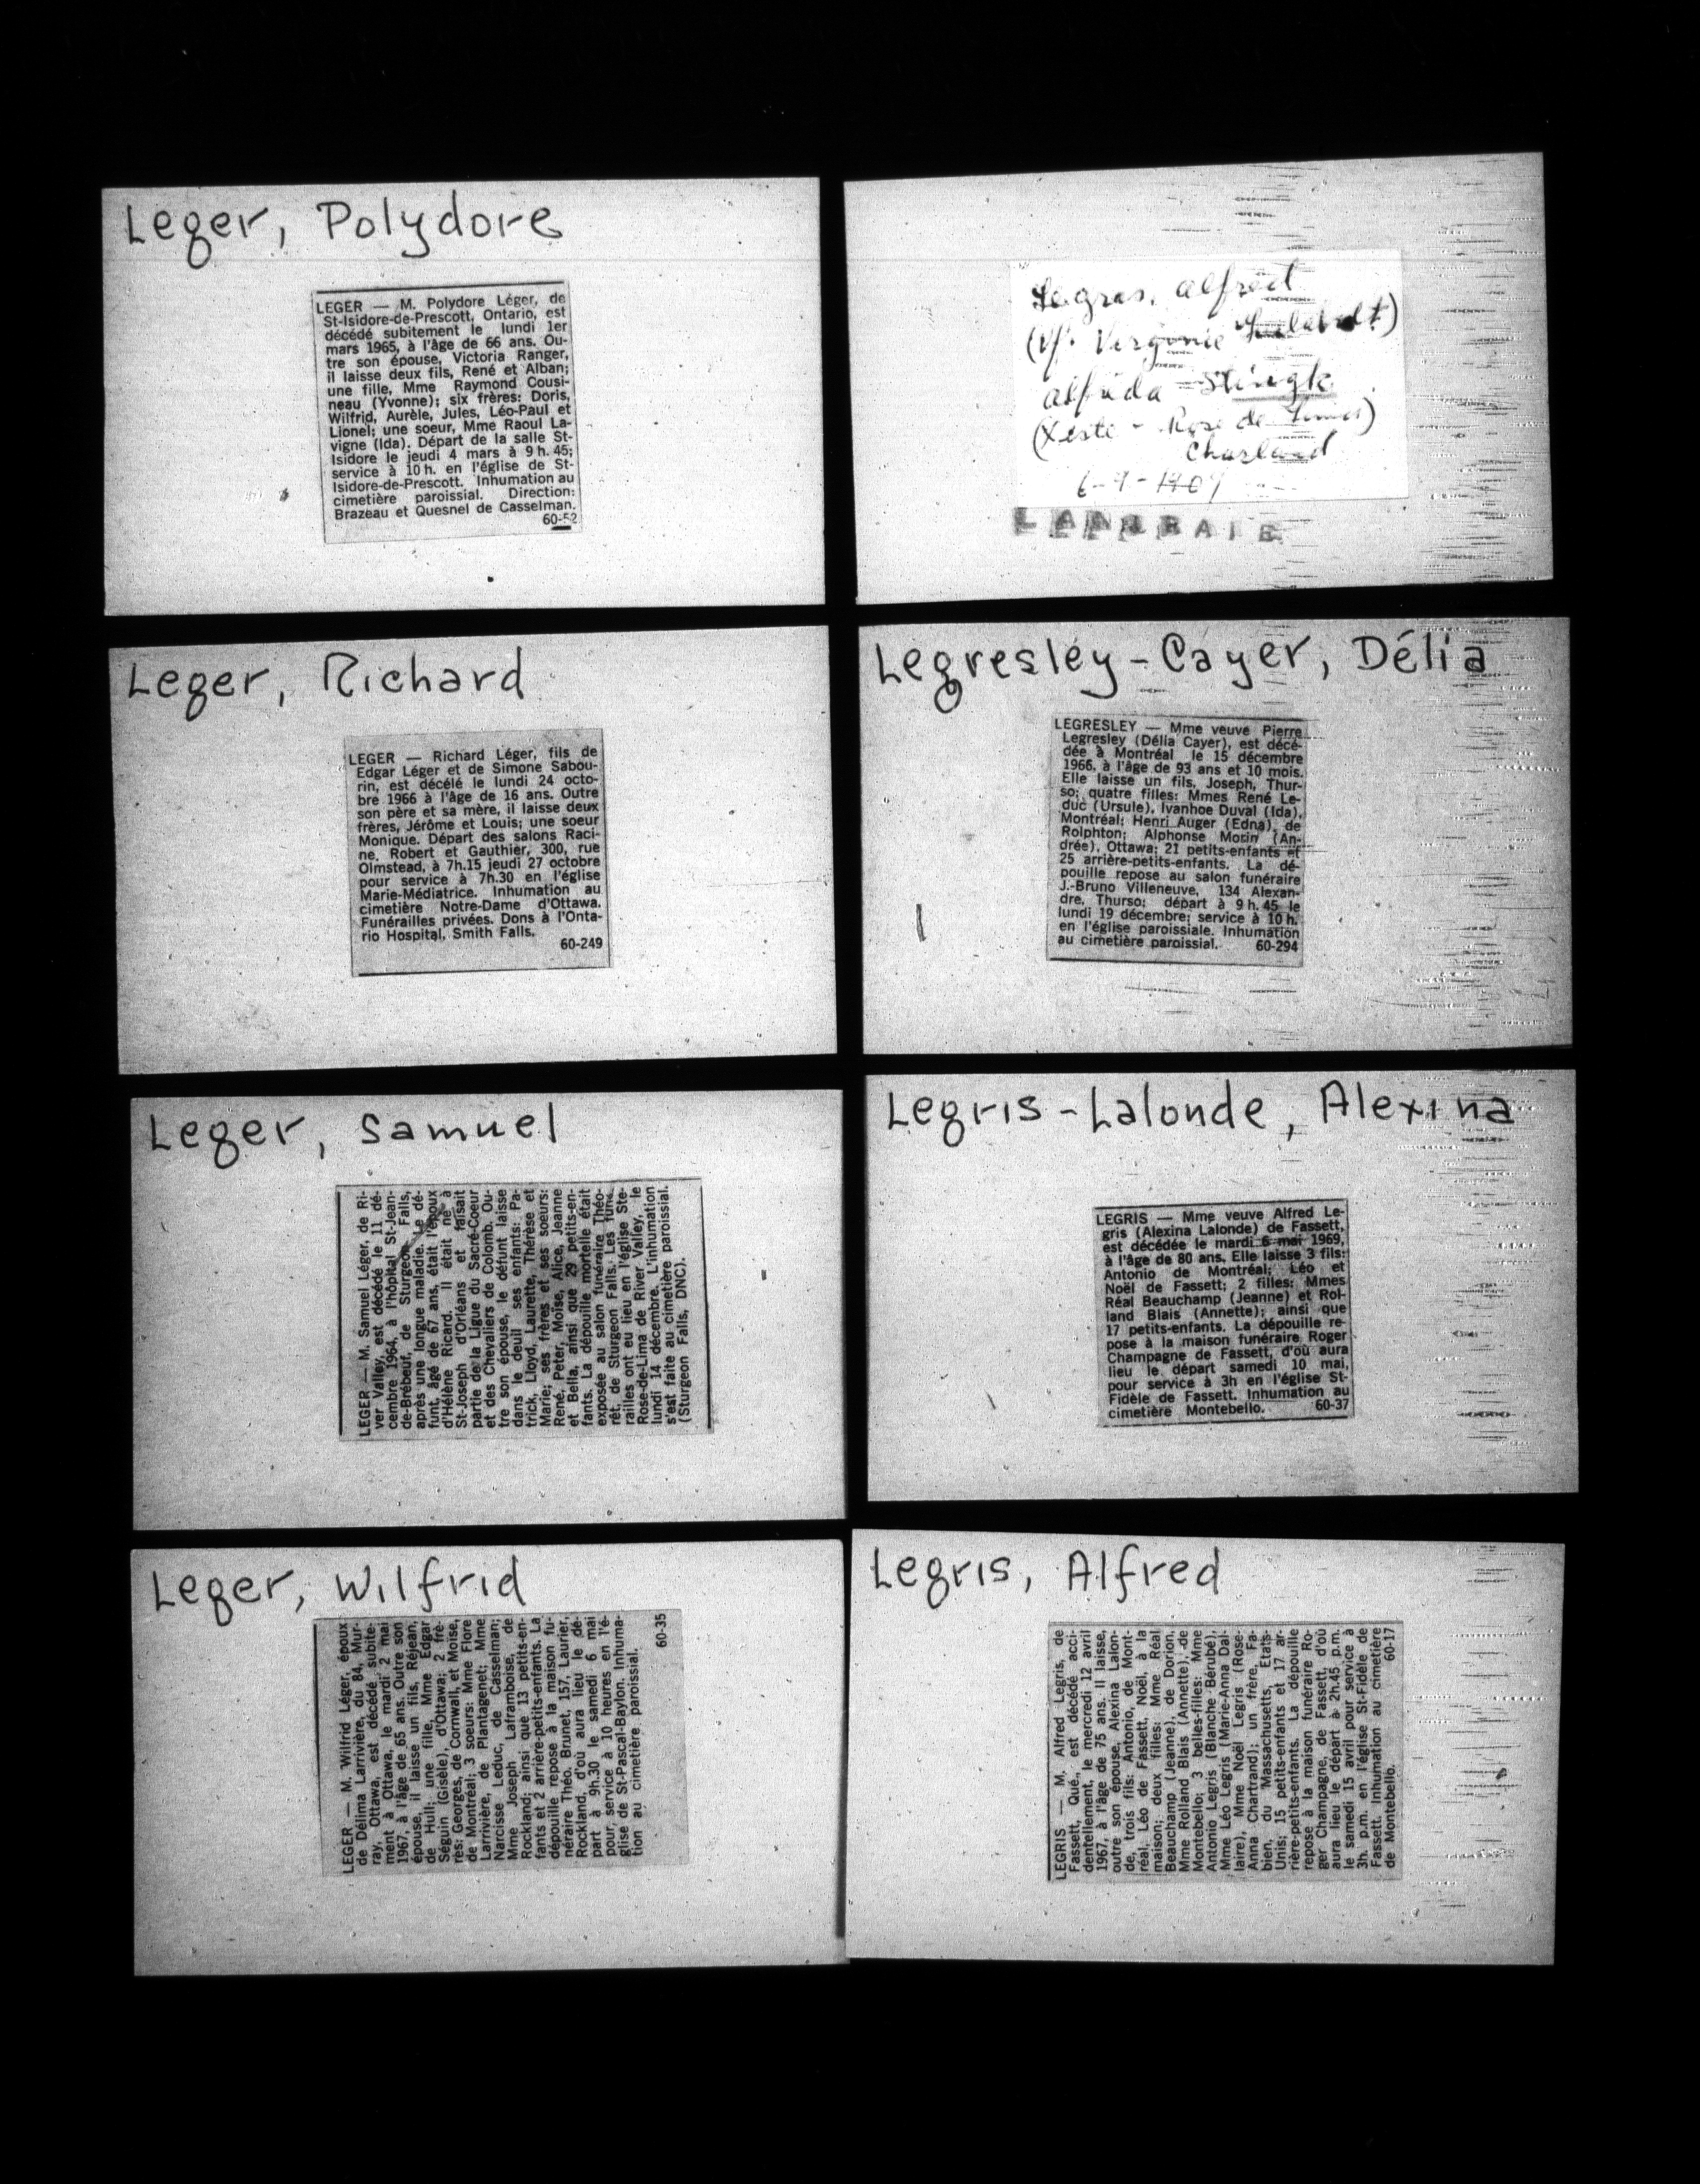 Leger, Polydore
LEGER — M. Polydore Léger, de
St-Isidore-de-Prescott, Ontario, est
décédé subitement le lundi 1er
mars 1965, à l'âge de 66 ans. Ou-
tre son épouse, Victoria Ranger,
il laisse deux fils, René et Alban;
une fille, Mme Raymond Cousi-
neau (Yvonne); six frères: Doris,
Wilfrid, Aurèle, Jules, Léo-Paul et
Lionel; une soeur, Mme Raoul La-
vigne (Ida). Départ de la salle St-
Isidore le jeudi 4 mars à 9 h. 45;
service à 10 h. en l'église de St-
Isidore-de-Prescott. Inhumation au
cimetière paroissial. Direction:
Brazeau et Quesnel de Casselman.
60-52
Leger, Richard
LEGER — Richard Léger, fils de
Edgar Léger et de Simone Sabou-
rin, est décélé le lundi 24 octo-
bre 1966 à l'âge de 16 ans. Outre
son père et sa mère, il laisse deux
frères, Jérôme et Louis; une soeur
Monique. Départ des salons Raci-
ne, Robert et Gauthier, 300, rue
Olmstead, à 7h.15 jeudi 27 octobre
pour service à 7h.30 en l'église
Marie-Médiatrice. Inhumation au
cimetière Notre-Dame d'Ottawa.
Funérailles privées. Dons à l'Onta-
rio Hospital, Smith Falls.
60-249
Leger, Samuel
LEGER — M. Samuel Léger, de Ri-
ver Valley, est décédé le 11 dé-
cembre 1964, à l'hôpital St-Jean-
de-Brébeuf, de Sturgeon Falls,
après une longue maladie. Le dé-
funt, âgé de 67 ans, était l'époux
d'Hélène Ricard. Il était né à
St-Joseph d'Orléans et faisait
partie de la Ligue du Sacré-Coeur
et des Chevaliers de Colomb. Ou-
tre son épouse, le défunt laisse
dans le deuil ses enfants: Pa-
trick, Lloyd, Laurette, Thérèse et
Marie; ses frères et ses soeurs:
René, Peter, Moïse, Alice, Jeanne
et Bella, ainsi que 29 petits-en-
fants. La dépouille mortelle était
exposée au salon funéraire Théo-
rêt, de Sturgeon Falls. Les funé-
railles ont eu lieu en l'église Ste-
Rose-de-Lima de River Valley, le
lundi 14 décembre. L'inhumation
s'est faite au cimetière paroissial.
(Sturgeon Falls, DNC).
Leger, Wilfrid
LEGER — M. Wilfrid Léger, époux
de Délima Larrivière, du 84, Mur-
ray, Ottawa, est décédé subite-
ment à Ottawa, le mardi 2 mai
1967, à l'âge de 65 ans. Outre son
épouse, il laisse un fils, Réjean,
de Hull; une fille, Mme Edgar
Séguin (Gisèle), d'Ottawa; 2 frè-
res: Georges, de Cornwall, et Moïse,
de Montréal; 3 soeurs: Mme Flore
Larrivière, de Plantagenet; Mme
Narcisse Leduc, de Casselman;
Mme Joseph Laframboise, de
Rockland; ainsi que 13 petits-en-
fants et 2 arrière-petits-enfants. La
dépouille repose à la maison fu-
néraire Théo. Brunet, 157, Laurier,
Rockland, d'où aura lieu le dé-
part à 9h.30 le samedi 6 mai
pour, service à 10 heures en l'é-
glise de St-Pascal-Baylon. Inhuma-
tion au cimetière paroissial.
60-35
Legras, Alfred
(Vf. Virginie
Alfreda Stingle
Rose de Lima)
Charland
LANORAIE
Legresley-Cayer, Délia
LEGRESLEY — Mme veuve Pierre
Legresley (Délia Cayer), est décé-
dée à Montréal le 15 décembre
1966, à l'âge de 93 ans et 10 mois.
Elle laisse un fils, Joseph, Thur-
so; quatre filles: Mmes René Le-
duc (Ursule), Ivanhoe Duval (Ida),
Montréal; Henri Auger (Edna), de
Rolphton; Alphonse Morin (An-
drée), Ottawa; 21 petits-enfants et
25 arrière-petits-enfants. La dé-
pouille repose au salon funéraire
J.-Bruno Villeneuve, 134 Alexan-
dre, Thurso; départ à 9 h. 45 le
lundi 19 décembre; service à 10 h.
en l'église paroissiale. Inhumation
au cimetière paroissial. 60-294
Legris-Lalonde, Alexina
LEGRIS — Mme veuve Alfred Le-
gris (Alexina Lalonde) de Fassett,
est décédée le mardi 6 mai 1969,
à l'âge de 80 ans. Elle laisse 3 fils:
Antonio de Montréal; Léo et
Noël de Fassett; 2 filles: Mmes
Réal Beauchamp (Jeanne) et Rol-
land Blais (Annette); ainsi que
17 petits-enfants. La dépouille re-
pose à la maison funéraire Roger
Champagne de Fassett, d'où aura
lieu le départ samedi 10 mai,
pour service à 3h en l'église St-
Fidèle de Fassett. Inhumation au
cimetière Montebello. 60-37
Legris, Alfred
LEGRIS — M. Alfred Legris, de
Fassett, Qué., est décédé acci-
dentellement, le mercredi 12 avril
1967, à l'âge de 75 ans. Il laisse,
outre son épouse, Alexina Lalon-
de, trois fils: Antonio, de Mont-
réal, Léo de Fassett, Noël, à la
maison; deux filles: Mme Réal
Beauchamp (Jeanne), de Dorion,
Mme Rolland Blais (Annette), de
Montebello; 3 belles-filles: Mme
Antonio Legris (Blanche Bérubé),
Mme Léo Legris (Marie-Anna Dal-
laire), Mme Noël Legris (Rose-
Anna Chartrand); un frère, Fa-
bien, du Massachusetts, Etats-
Unis; 15 petits-enfants et 17 ar-
rière-petits-enfants. La dépouille
repose à la maison funéraire Ro-
ger Champagne, de Fassett, d'où
aura lieu le départ à 2h.45 p.m.
le samedi 15 avril pour service à
3h. p.m. en l'église St-Fidèle de
Fassett. Inhumation au cimetière
de Montebello. 60-17